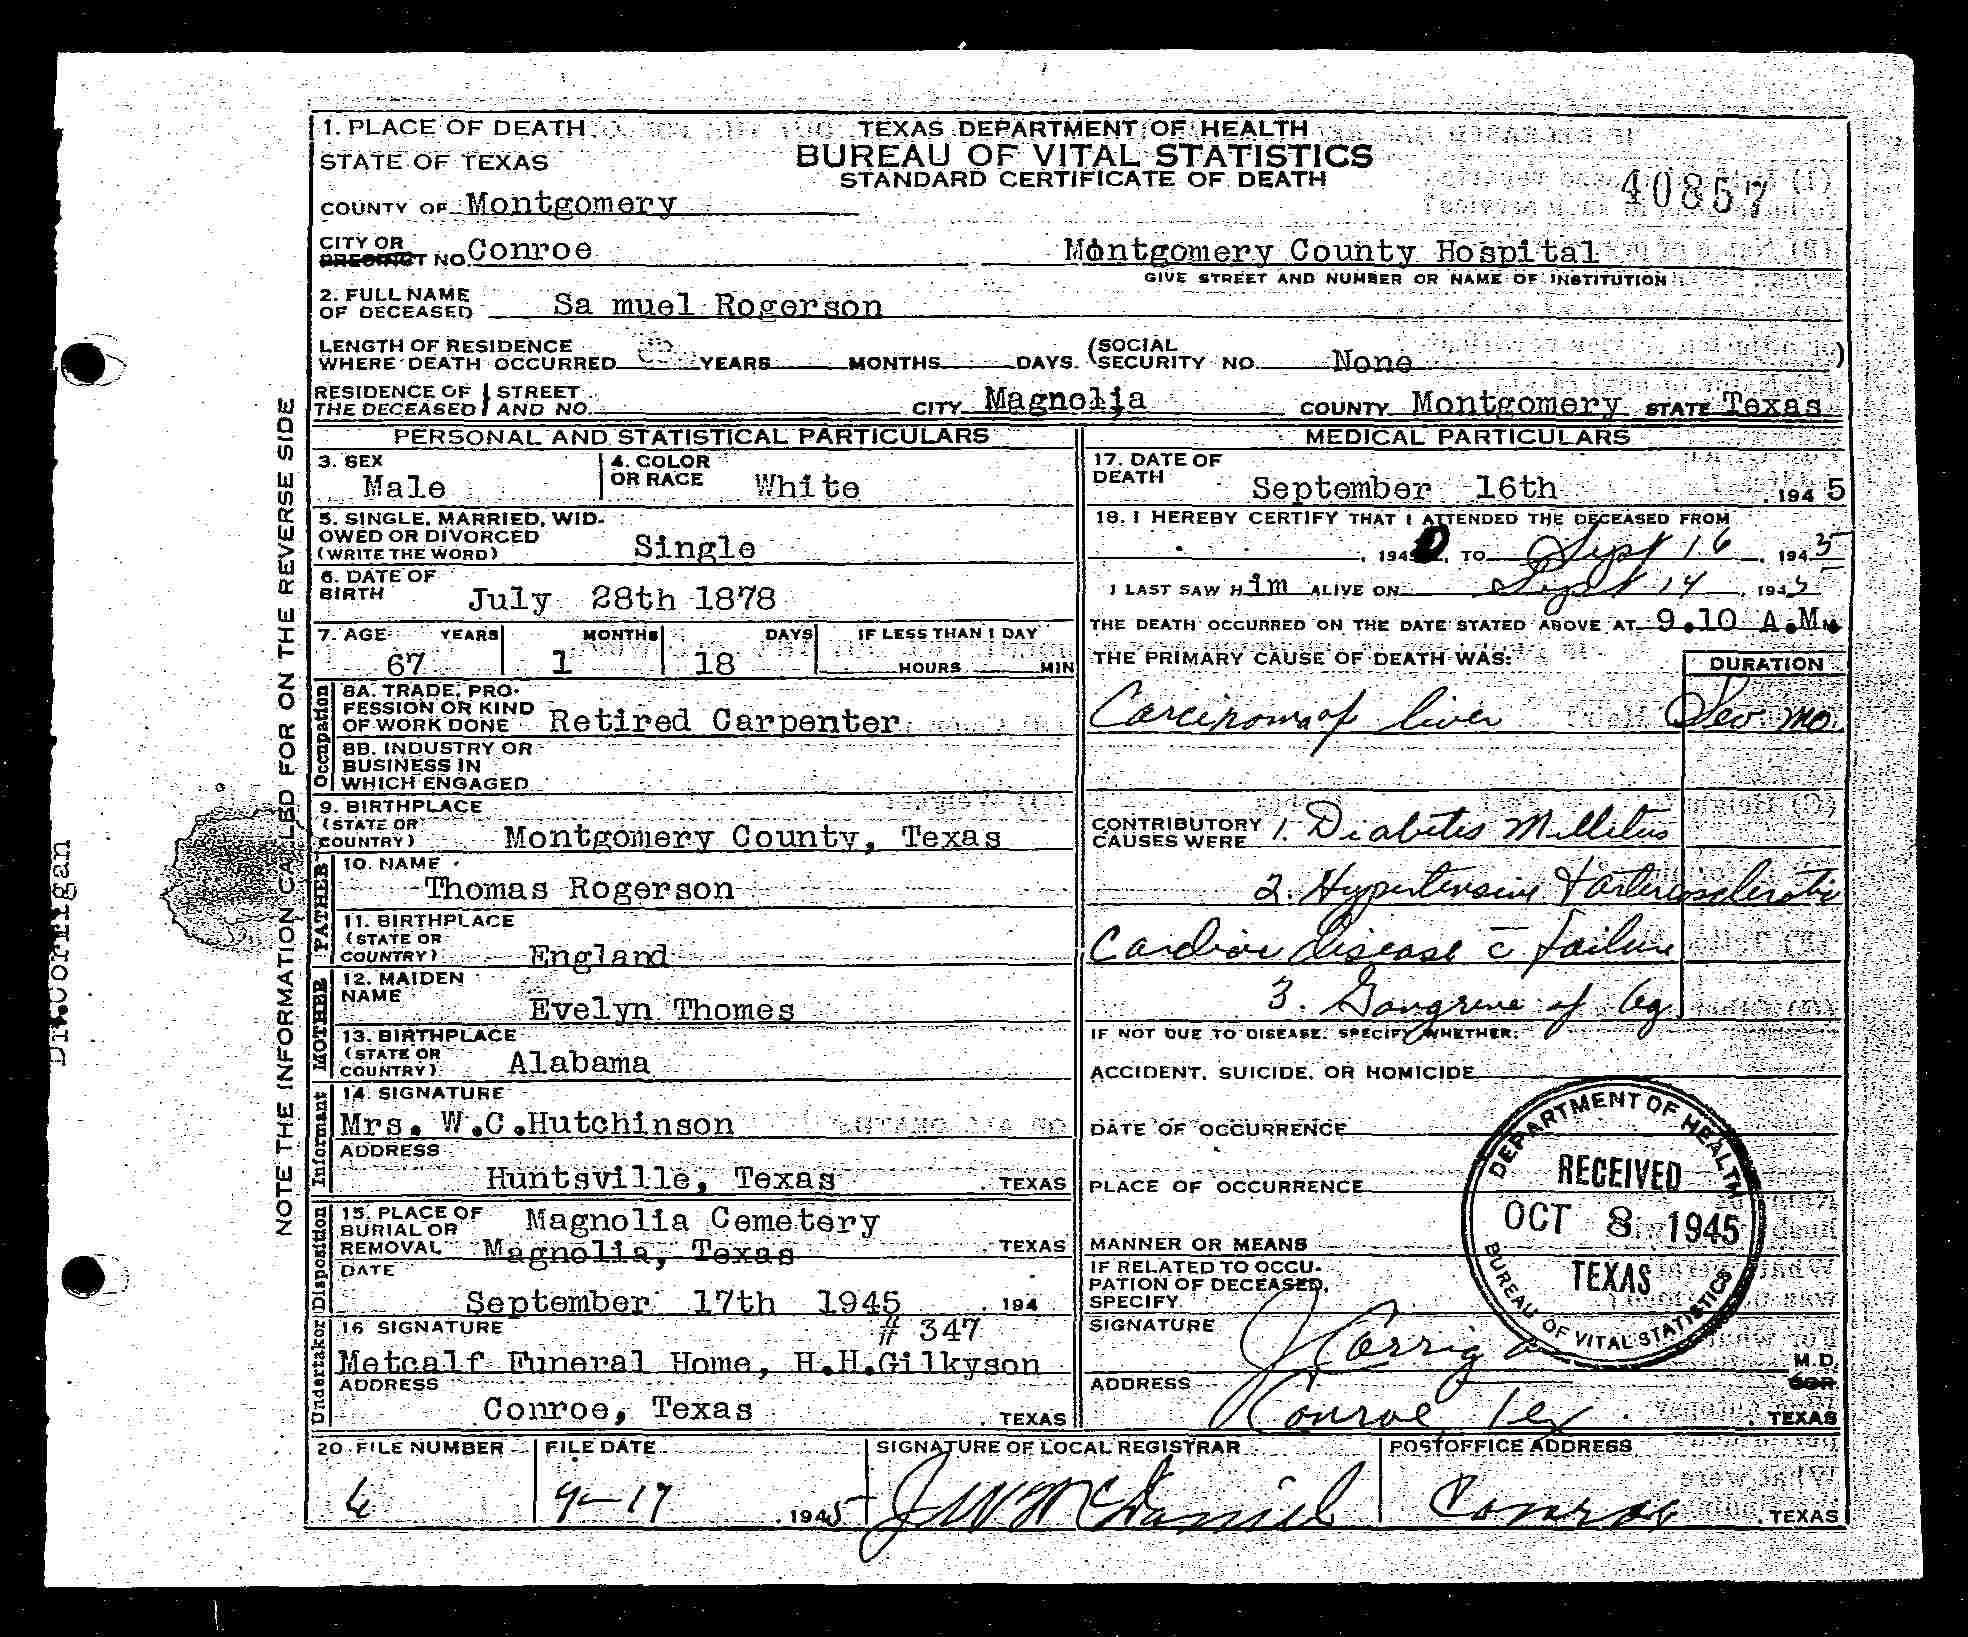 1. PLACE OF DEATH
STATE OF TEXAS
TEXAS DEPARTMENT OF HEALTH
BUREAU OF VITAL STATISTICS
STANDARD CERTIFICATE OF DEATH
40857
COUNTY OF Montgomery
CITY OR
PRECINCT NO. Conroe Montgomery County Hospital
GIVE STREET AND NUMBER OR NAME OF INSTITUTION
2. FULL NAME
OF DECEASED Sa muel Rogerson
LENGTH OF RESIDENCE
WHERE DEATH OCCURRED YEARS MONTHS DAYS. (SOCIAL
SECURITY NO. None )
RESIDENCE OF THE DECEASED STREET AND NO. CITY Magnolia COUNTY Montgomery STATE Texas
PERSONAL AND STATISTICAL PARTICULARS
3. SEX
Male
4. COLOR
OR RACE White
5. SINGLE, MARRIED, WID-
OWED OR DIVORCED
(WRITE THE WORD) Single
6. DATE OF
BIRTH July 28th 1878
7. AGE YEARS MONTHS DAYS IF LESS THAN 1 DAY
67 1 18 HOURS MIN
Occupation
8A. TRADE, PRO-
FESSION OR KIND
OF WORK DONE Retired Carpenter
8B. INDUSTRY OR
BUSINESS IN
WHICH ENGAGED
9. BIRTHPLACE
(STATE OR
COUNTRY) Montgomery County, Texas
FATHER
10. NAME
Thomas Rogerson
11. BIRTHPLACE
(STATE OR
COUNTRY) England
MOTHER
12. MAIDEN
NAME Evelyn Thomes
13. BIRTHPLACE
(STATE OR
COUNTRY) Alabama
Informant
14. SIGNATURE
Mrs. W.C.Hutchinson
ADDRESS
Huntsville, Texas . TEXAS
Disposition
15. PLACE OF
BURIAL OR
REMOVAL Magnolia Cemetery
Magnolia, Texas . TEXAS
DATE
September 17th 1945 . 194
Undertaker
16 SIGNATURE # 347
Metcalf Funeral Home, H.H.Gilkyson
ADDRESS
Conroe, Texas . TEXAS
MEDICAL PARTICULARS
17. DATE OF
DEATH September 16th , 194 5
18. I HEREBY CERTIFY THAT I ATTENDED THE DECEASED FROM
, 194 , TO Sept 16 , 194 5
I LAST SAW H im ALIVE ON Sept 14 , 194 5
THE DEATH OCCURRED ON THE DATE STATED ABOVE AT 9.10 A.M.
THE PRIMARY CAUSE OF DEATH WAS: DURATION
Carcinoma of liver Sev mo.
CONTRIBUTORY
CAUSES WERE 1. Diabetis Mellitus
2. Hypertensive & arteriosclerotic
Cardiac disease c̄ failure
3. Gangrene of leg
IF NOT DUE TO DISEASE, SPECIFY WHETHER:
ACCIDENT, SUICIDE, OR HOMICIDE
DATE OF OCCURRENCE
PLACE OF OCCURRENCE
MANNER OR MEANS
IF RELATED TO OCCU-
PATION OF DECEASED,
SPECIFY
SIGNATURE J Corrigan M.D.
ADDRESS
Conroe Tex . TEXAS
DEPARTMENT OF HEALTH
RECEIVED
OCT 8 1945
TEXAS
BUREAU OF VITAL STATISTICS
20. FILE NUMBER FILE DATE SIGNATURE OF LOCAL REGISTRAR POSTOFFICE ADDRESS
6 9-17 , 1945 J W McDaniel Conroe , TEXAS
NOTE THE INFORMATION CALLED FOR ON THE REVERSE SIDE
Dr.Corrigan